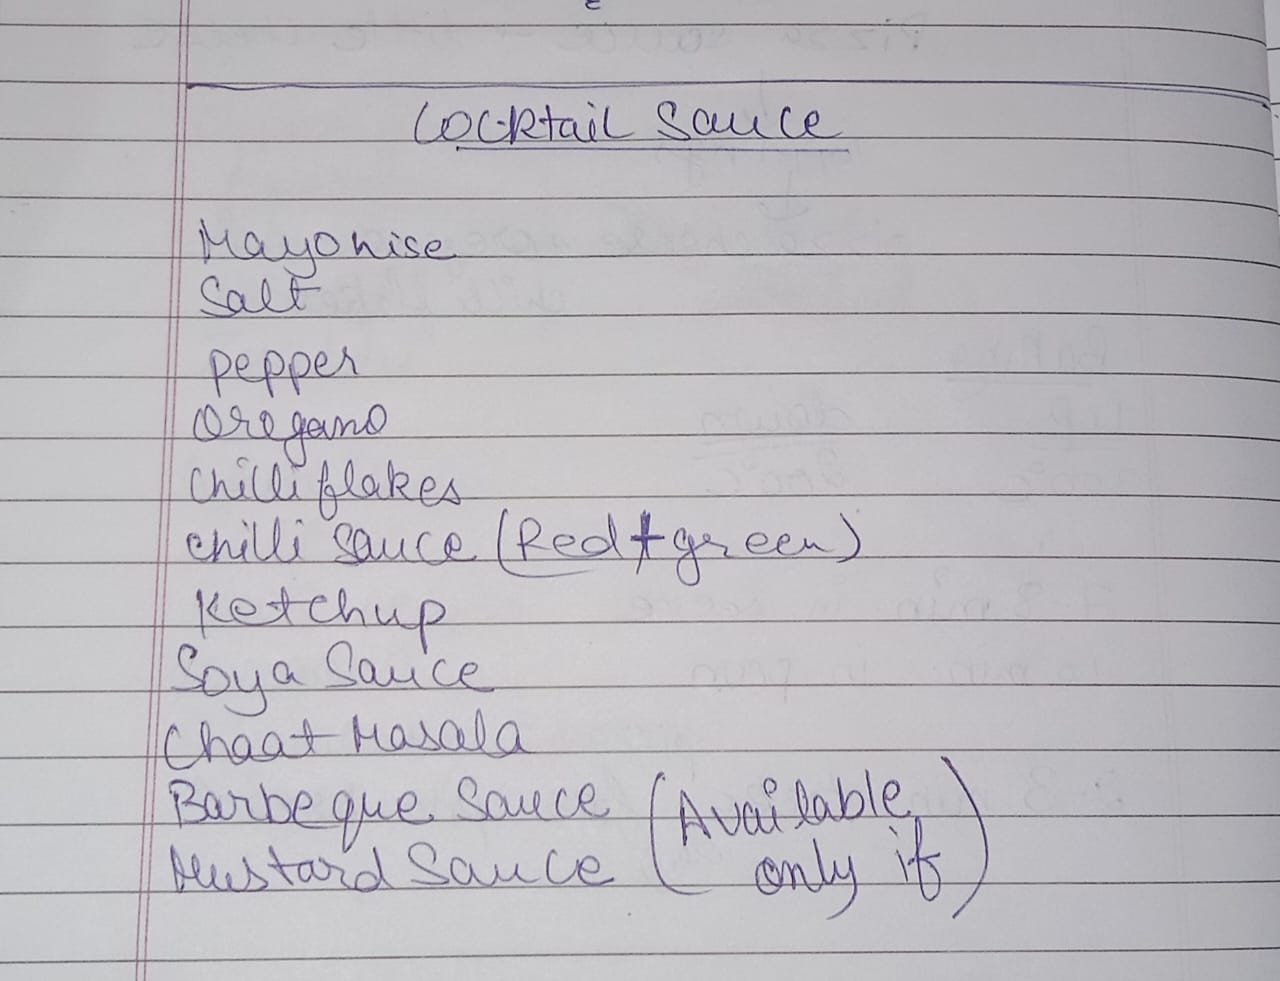 Cocktail Sauce
Mayonise
Salt
pepper
Oregano
chilli flakes
chilli sauce (Red+green)
Ketchup
Soya Sauce
Chaat Masala
Barbeque Sauce (Available
Mustard Sauce only if)